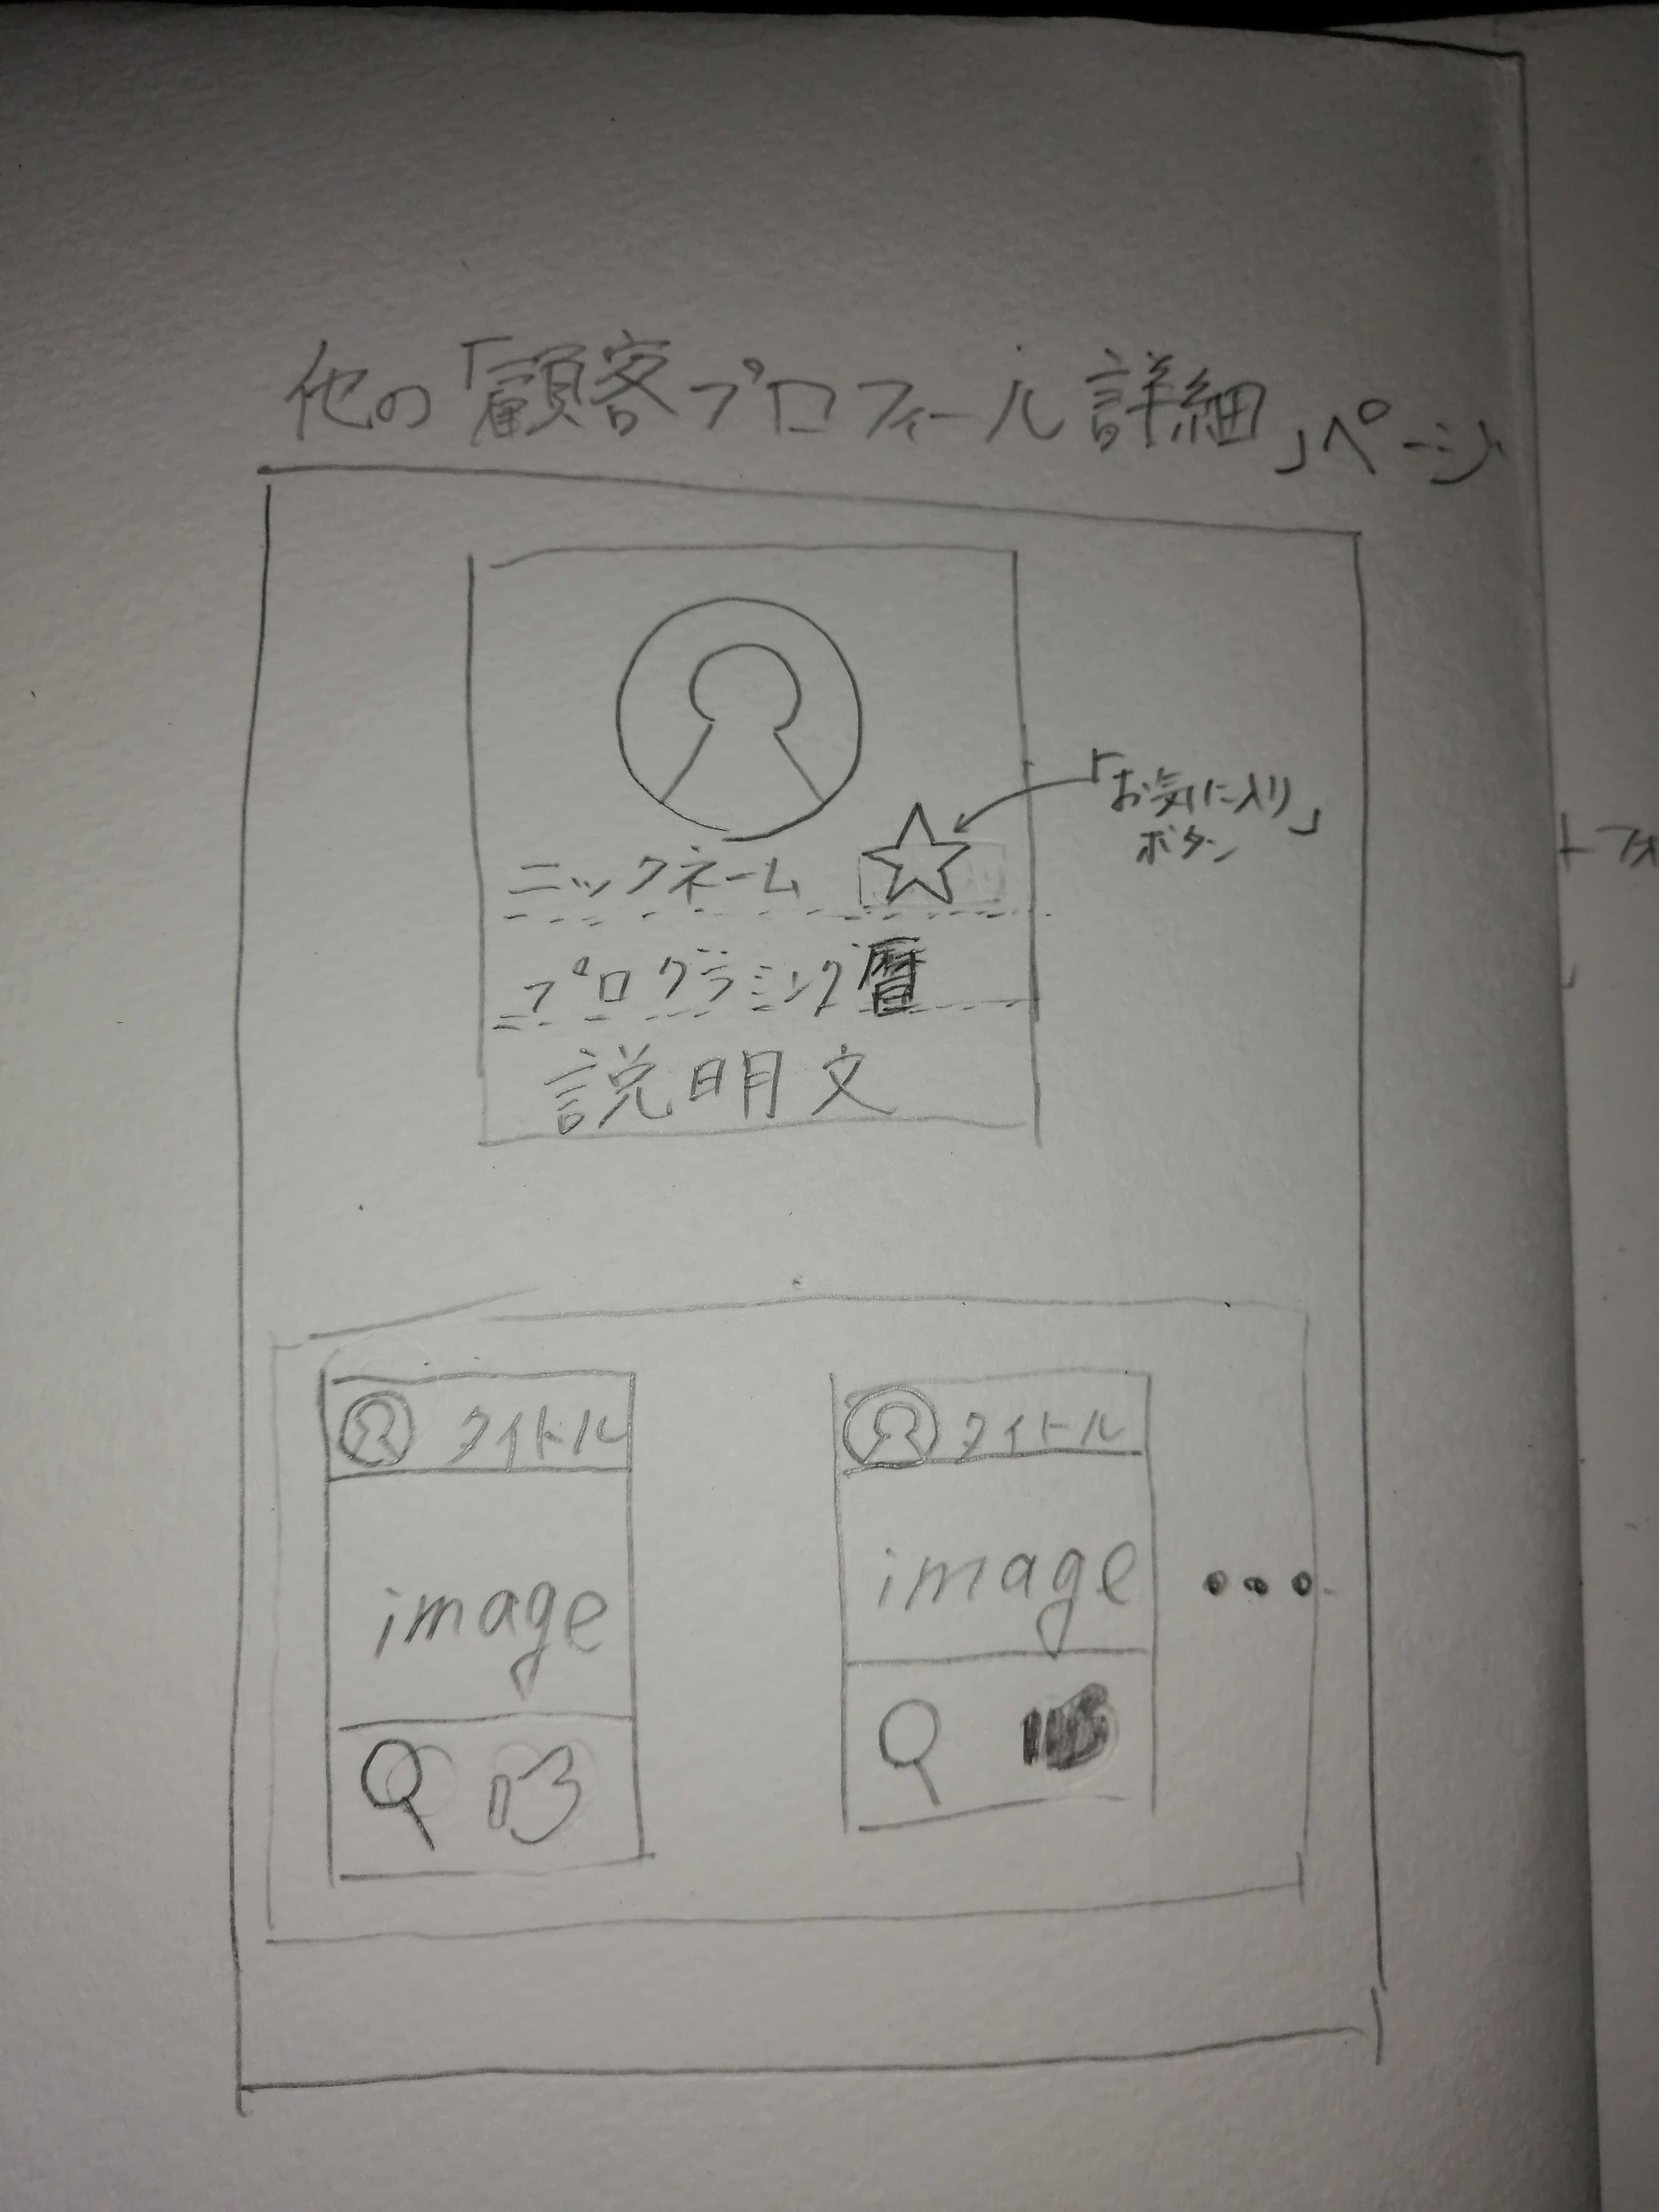 他の「顧客プロフィール詳細」ページ
「お気に入り」
ボタン
ニックネーム
プログラミング暦
説明文
タイトル
image
タイトル
image